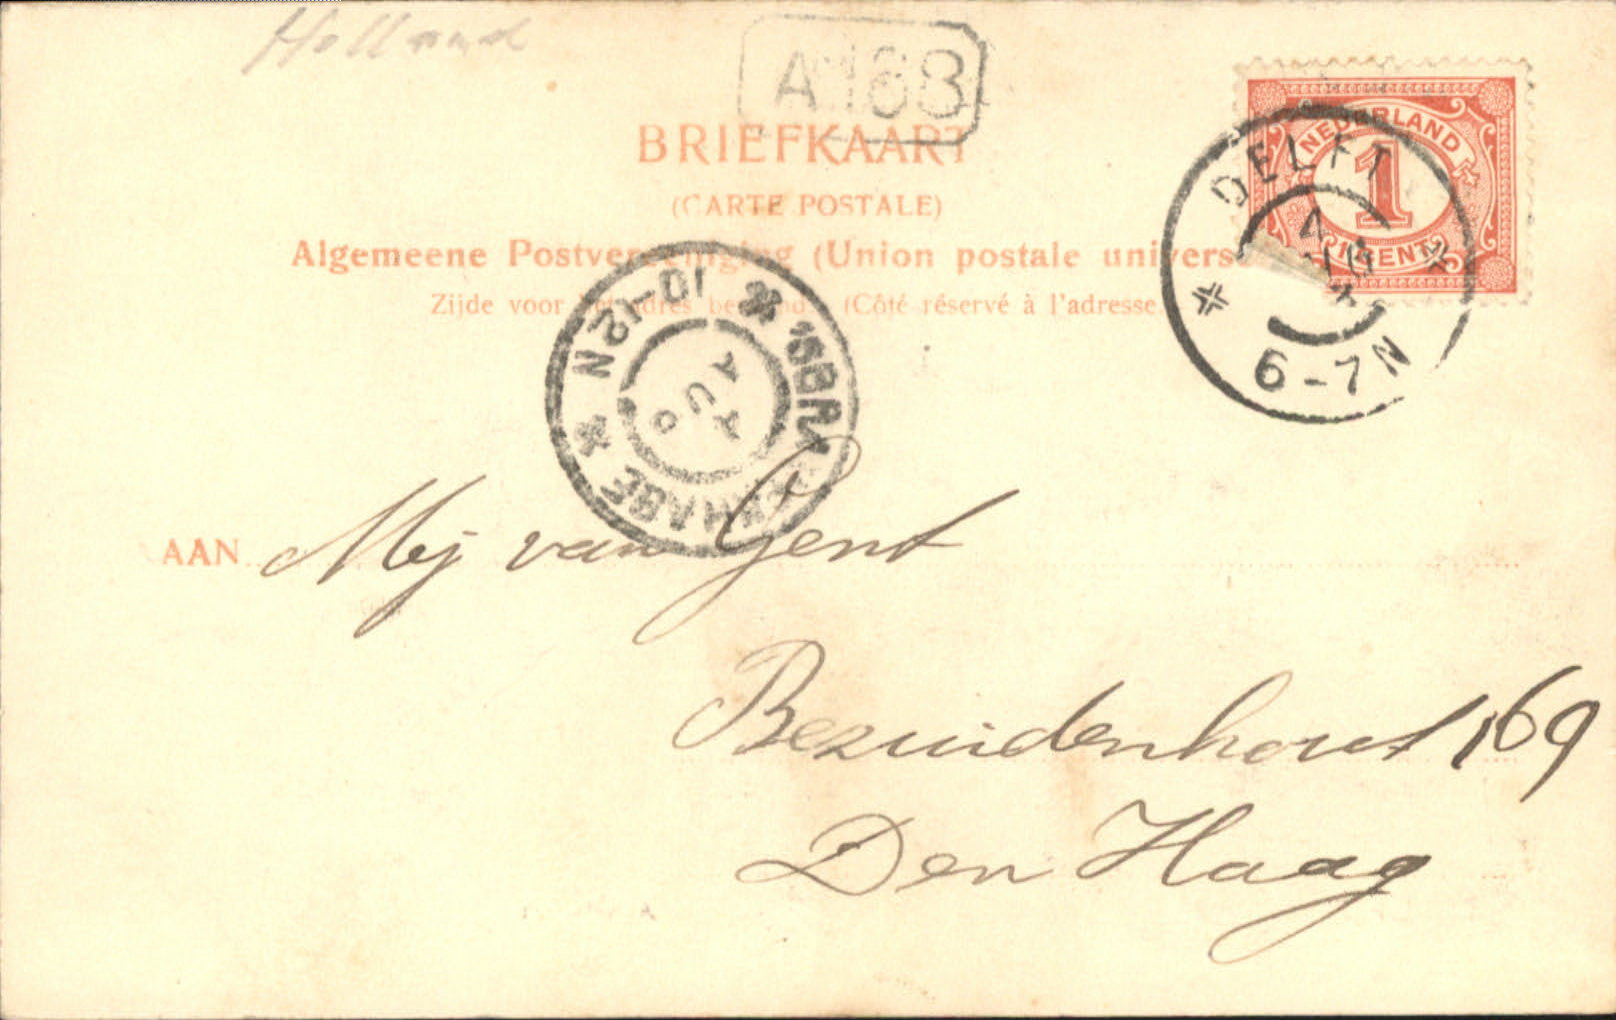 Holland
A 168
BRIEFKAART
(CARTE POSTALE)
Algemeene Postvereeniging (Union postale univers
Zijde voor het adres bestemd. (Côté réservé à l'adresse.
NEDERLAND
1
1 CENT
DELFT
6-7N
10-12N
AUG
AAN Mej van Gent
Bezuidenhout 169
Den Haag